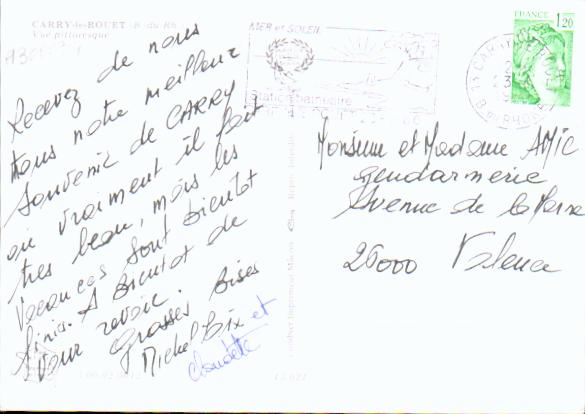 CARRY-le-ROUET (B. du Rh.)
Vue pittoresque
Recevez de nous
tous notre meilleur
souvenir de CARRY
où vraiment il fait
très beau, mais les
Vacances sont bientôt
finies. A Bientôt de
vous revoir.
Grosses Bises
Michel Bix et
Claudette
MER et SOLEIL
Station balnéaire
FRANCE
1,20
Monsieur et Madame AMIC
Gendarmerie
Avenue de la Marne
26000 Valence